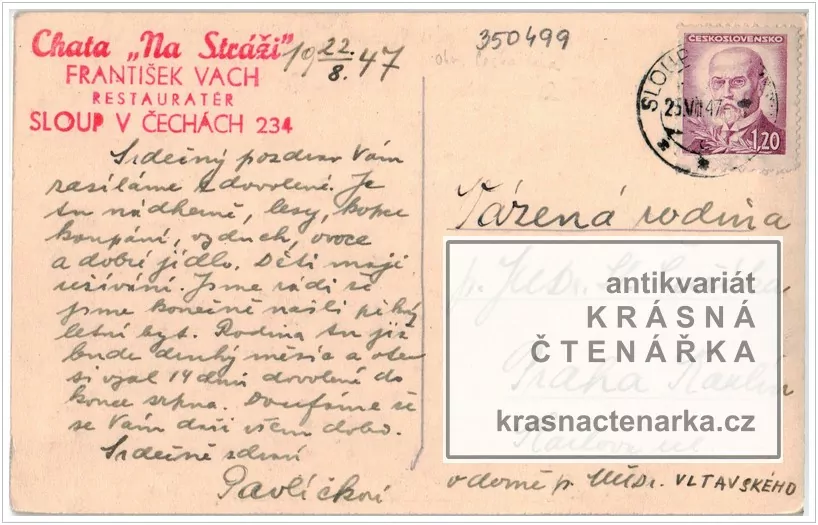 Chata „Na Stráži"
FRANTIŠEK VACH
RESTAURATÉR
SLOUP V ČECHÁCH 234
19 22/8. 47
350499
ČESKOSLOVENSKO
1,20
SLOUP
25.VIII.47
Srdečný pozdrav Vám
zasíláme z dovolené. Je
tu nádherně, lesy, kopce
koupání, vzduch, ovoce
a dobré jídlo. Děti mají
užívání. Jsme rádi že
jsme konečně našli pěkný
letní byt. Rodina tu již
bude druhý měsíc a otec
si vzal 14 dnů dovolené do
konce srpna. Doufáme že
se Vám daří všem dobře.
Srdečně zdraví
Pavlíčkovi
Vážená rodina
p. JUDr.
Praha Karlín
Karlova ul
v domě p. MUDr. VLTAVSKÉHO
antikvariát
KRÁSNÁ
ČTENÁŘKA
krasnactenarka.cz